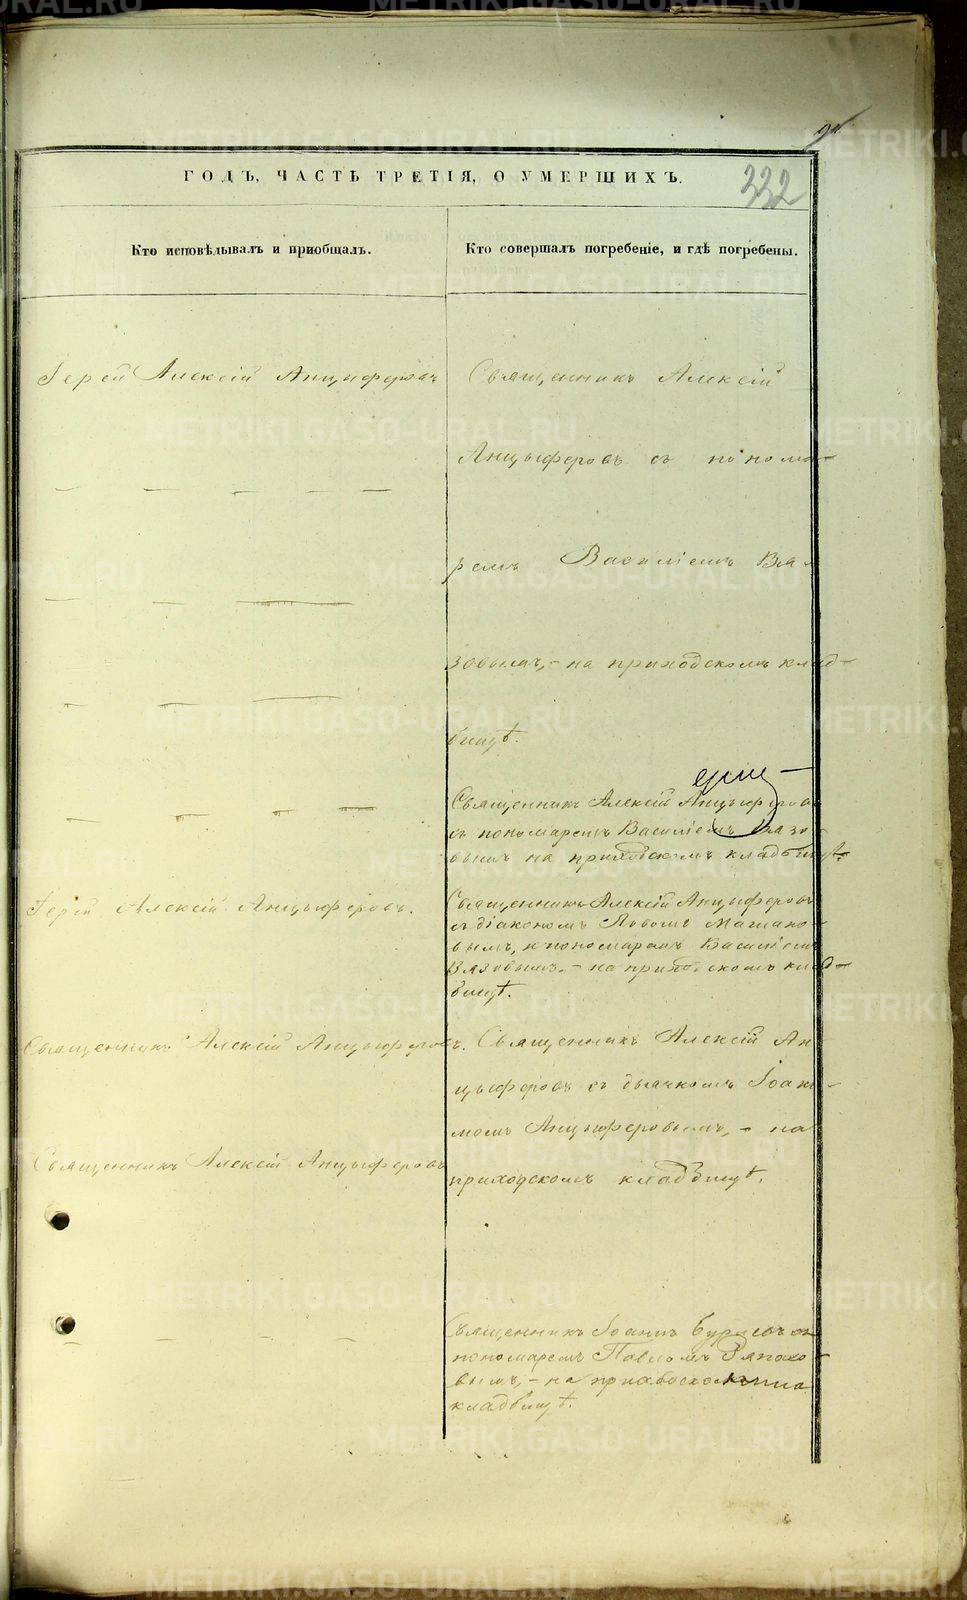 332
ГОДЪ, ЧАСТЬ ТРЕТІЯ, О УМЕРШИХЪ.
Кто исповѣдывалъ и пріобщалъ.
Кто совершалъ погребеніе, и гдѣ погребены.
Іерей Алексій Анцыферовъ
Священникъ Алексій
Анцыферовъ съ понома-
ремъ Василіемъ Вя-
зовымъ, - на приходскомъ клад-
бищѣ.
Священникъ Алексій Анцыферовъ
съ пономаремъ Василіемъ Вязо-
вымъ на приходскомъ кладбищѣ.
Іерей Алексій Анцыферовъ.
Священникъ Алексій Анцыферовъ
съ діакономъ
вымъ, и пономаремъ Василіемъ
Вязовымъ, - на приходскомъ клад-
бищѣ.
Священникъ Алексій Анцыферовъ.
Священникъ Алексій Ан-
цыферовъ съ дьячкомъ Іоан-
номъ Анцыферовымъ, - на
приходскомъ кладбищѣ.
Священникъ Алексій Анцыферовъ
Священникъ Іоаннъ съ
пономаремъ Павломъ
вымъ, - на
кладбищѣ.
METRIKI.GASO-URAL.RU